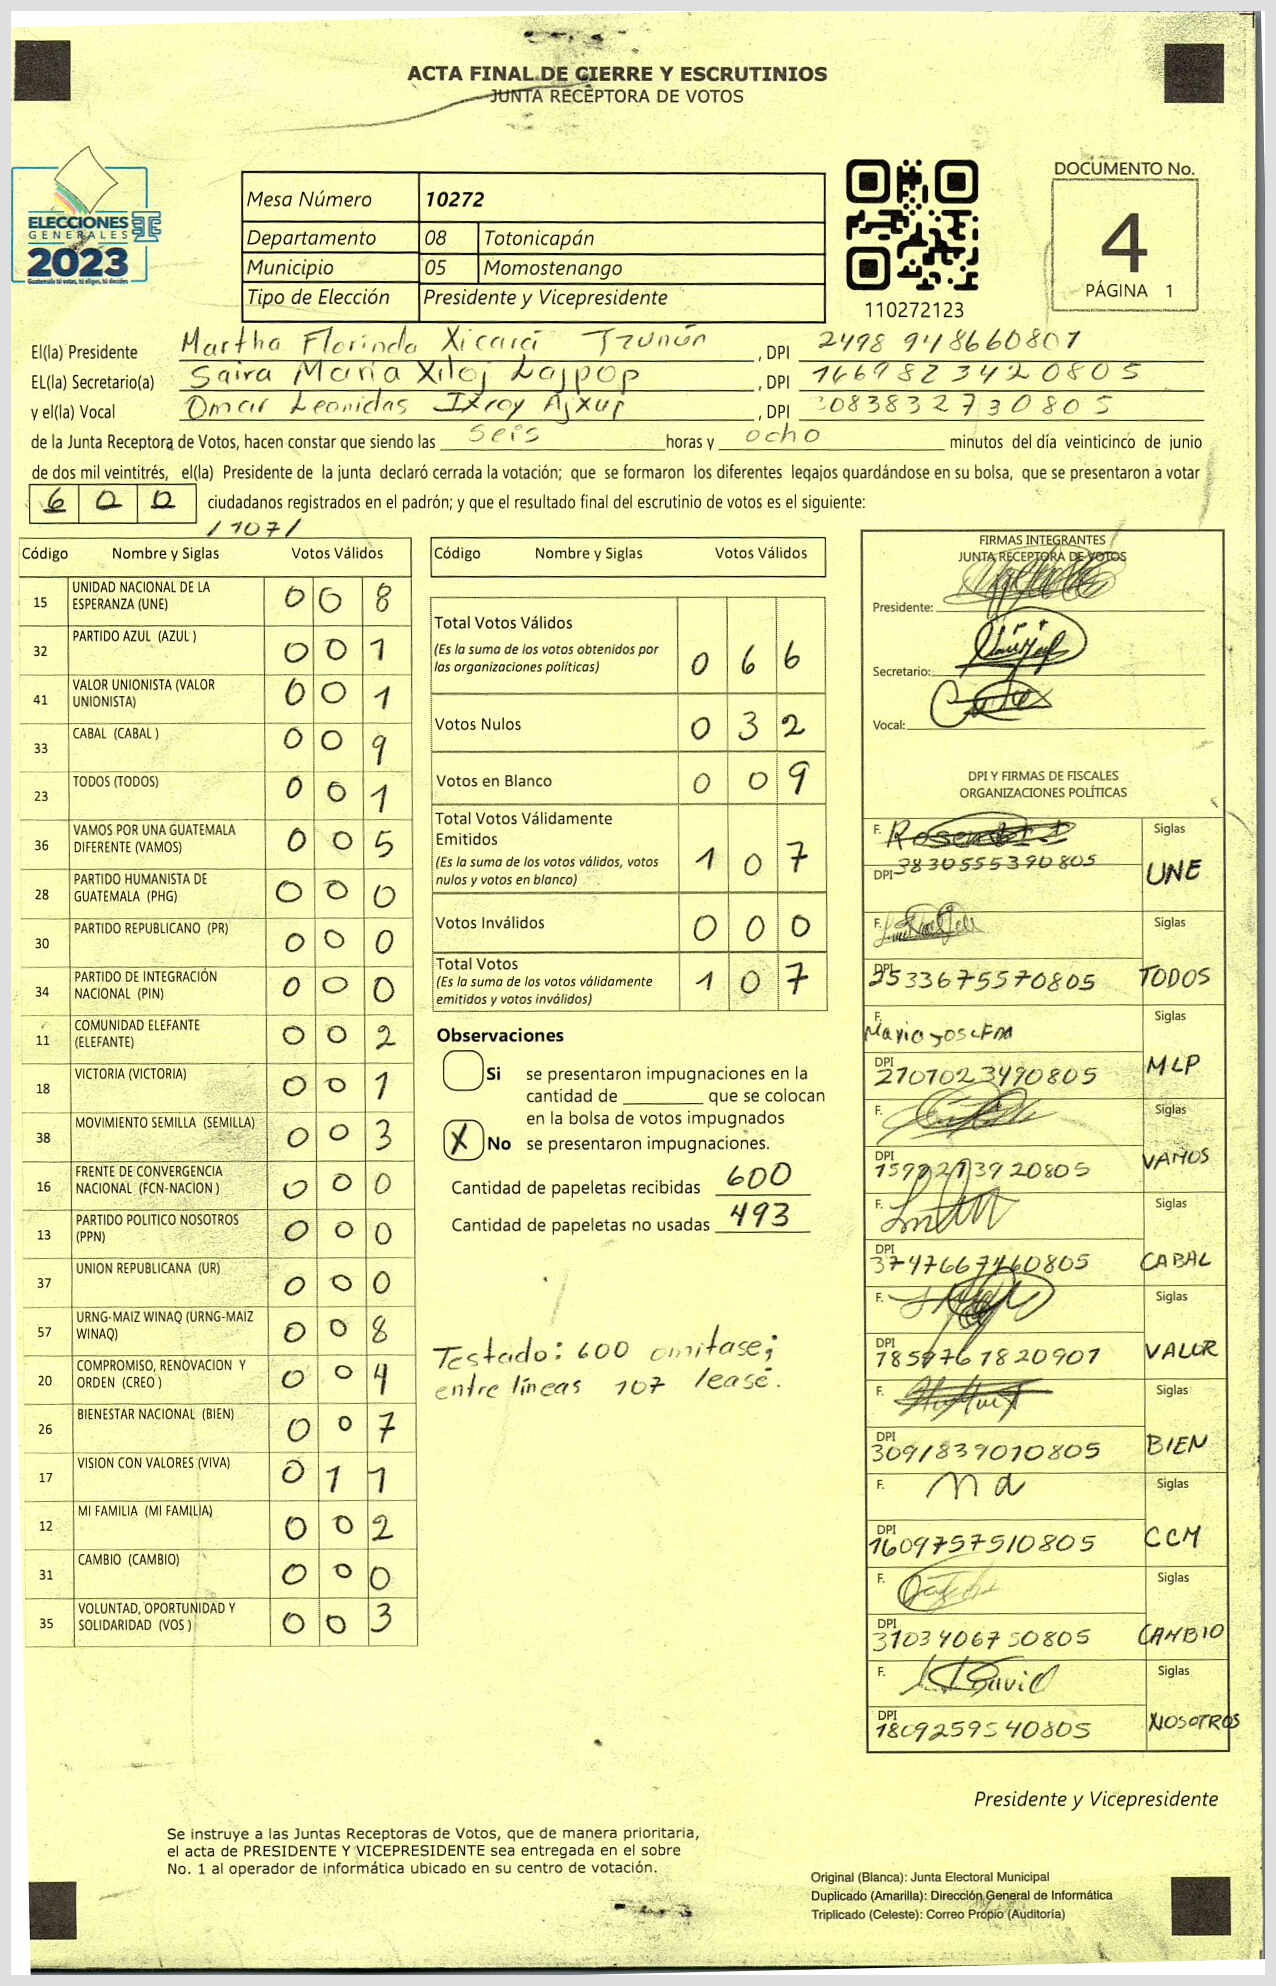 ACTA FINAL DE CIERRE Y ESCRUTINIOS
JUNTA RECEPTORA DE VOTOS
ELECCIONES
GENERALES
2023
Guatemala tú votas, tú eliges, tú decides
Mesa Número 10272
Departamento 08 Totonicapán
Municipio 05 Momostenango
Tipo de Elección Presidente y Vicepresidente
110272123
DOCUMENTO No.
4
PÁGINA 1
El(la) Presidente Martha Florinda Xicará Tzunún, DPI 2498 948660801
EL(la) Secretario(a) Saira María Xiloj Lajpop, DPI 1669823420805
y el(la) Vocal Omar Leonidas Ixcoy Ajxup, DPI 3083832730805
de la Junta Receptora de Votos, hacen constar que siendo las seis horas y ocho minutos del día veinticinco de junio
de dos mil veintitrés, el(la) Presidente de la junta declaró cerrada la votación; que se formaron los diferentes legajos guardándose en su bolsa, que se presentaron a votar
600 ciudadanos registrados en el padrón; y que el resultado final del escrutinio de votos es el siguiente:
/107/
Código Nombre y Siglas Votos Válidos
15 UNIDAD NACIONAL DE LA ESPERANZA (UNE) 0 0 8
32 PARTIDO AZUL (AZUL ) 0 0 1
41 VALOR UNIONISTA (VALOR UNIONISTA) 0 0 1
33 CABAL (CABAL ) 0 0 9
23 TODOS (TODOS) 0 0 1
36 VAMOS POR UNA GUATEMALA DIFERENTE (VAMOS) 0 0 5
28 PARTIDO HUMANISTA DE GUATEMALA (PHG) 0 0 0
30 PARTIDO REPUBLICANO (PR) 0 0 0
34 PARTIDO DE INTEGRACIÓN NACIONAL (PIN) 0 0 0
11 COMUNIDAD ELEFANTE (ELEFANTE) 0 0 2
18 VICTORIA (VICTORIA) 0 0 1
38 MOVIMIENTO SEMILLA (SEMILLA) 0 0 3
16 FRENTE DE CONVERGENCIA NACIONAL (FCN-NACION ) 0 0 0
13 PARTIDO POLITICO NOSOTROS (PPN) 0 0 0
37 UNION REPUBLICANA (UR) 0 0 0
57 URNG-MAIZ WINAQ (URNG-MAIZ WINAQ) 0 0 8
20 COMPROMISO, RENOVACION Y ORDEN (CREO ) 0 0 4
26 BIENESTAR NACIONAL (BIEN) 0 0 7
17 VISION CON VALORES (VIVA) 0 1 1
12 MI FAMILIA (MI FAMILIA) 0 0 2
31 CAMBIO (CAMBIO) 0 0 0
35 VOLUNTAD, OPORTUNIDAD Y SOLIDARIDAD (VOS ) 0 0 3
Código Nombre y Siglas Votos Válidos
Total Votos Válidos 0 6 6
(Es la suma de los votos obtenidos por
las organizaciones políticas)
Votos Nulos 0 3 2
Votos en Blanco 0 0 9
Total Votos Válidamente
Emitidos 1 0 7
(Es la suma de los votos válidos, votos
nulos y votos en blanco)
Votos Inválidos 0 0 0
Total Votos 1 0 7
(Es la suma de los votos válidamente
emitidos y votos inválidos)
Observaciones
Si se presentaron impugnaciones en la
cantidad de ________ que se colocan
en la bolsa de votos impugnados
X No se presentaron impugnaciones.
Cantidad de papeletas recibidas 600
Cantidad de papeletas no usadas 493
Testado: 600 omitase;
entre líneas 107 lease.
FIRMAS INTEGRANTES
JUNTA RECEPTORA DE VOTOS
Presidente:
Secretario:
Vocal:
DPI Y FIRMAS DE FISCALES
ORGANIZACIONES POLÍTICAS
F. Siglas
DPI 3830555390805 UNE
F. Siglas
DPI 2533675570805 TODOS
F. Siglas
DPI 2707023490805 MLP
F. Siglas
DPI VAMOS
F. Siglas
DPI 3747667460805 CABAL
F. Siglas
DPI VALOR
F. Siglas
DPI 3091839010805 BIEN
F. Siglas
DPI 1609757510805 CCM
F. Siglas
DPI 3103406750805 CAMBIO
F. Siglas
DPI 1809259540805 NOSOTROS
Presidente y Vicepresidente
Se instruye a las Juntas Receptoras de Votos, que de manera prioritaria,
el acta de PRESIDENTE Y VICEPRESIDENTE sea entregada en el sobre
No. 1 al operador de informática ubicado en su centro de votación.
Original (Blanca): Junta Electoral Municipal
Duplicado (Amarilla): Dirección General de Informática
Triplicado (Celeste): Correo Propio (Auditoría)